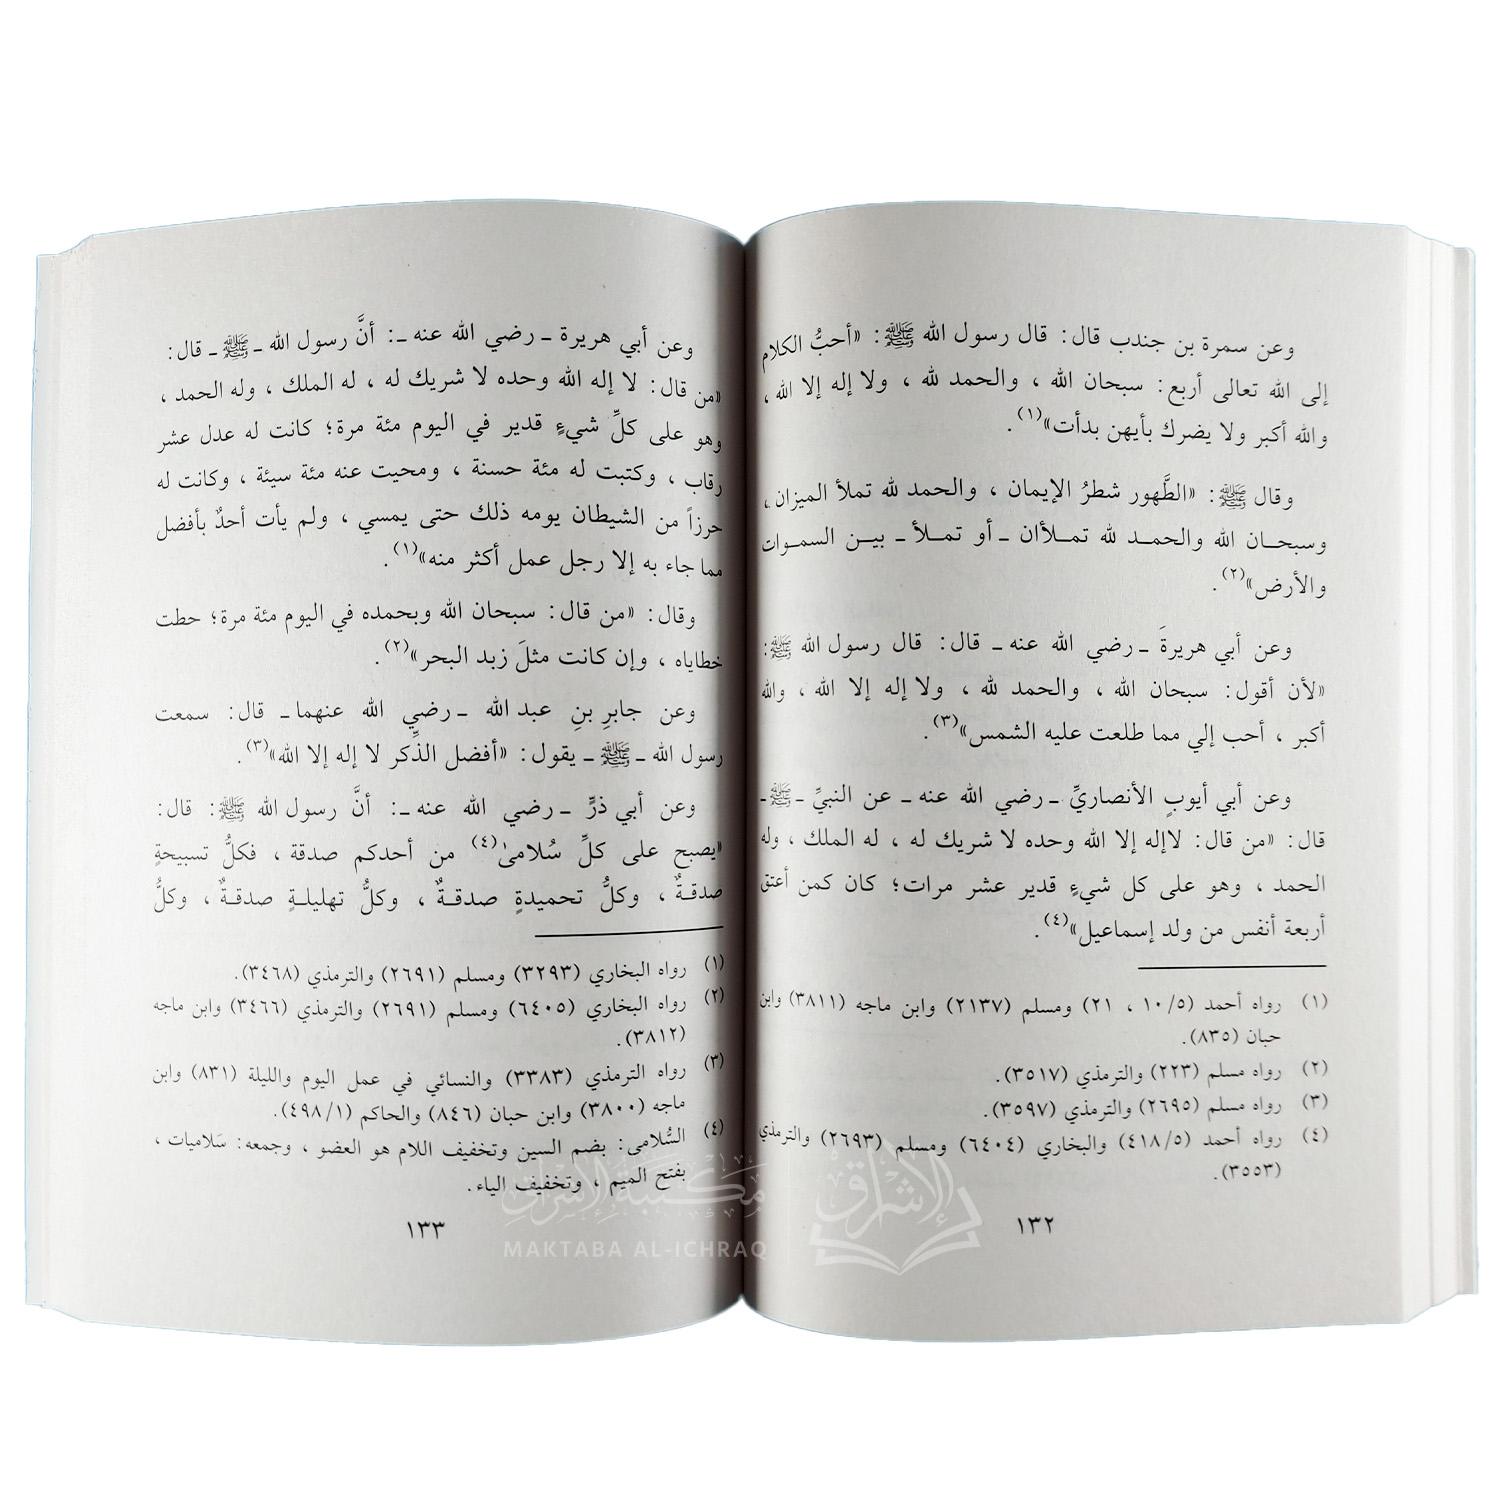 وعن سمرة بن جندب قال: قال رسول الله ﷺ: «أحبُّ الكلام
إلى الله تعالى أربع: سبحان الله ، والحمد لله ، ولا إله إلا الله ،
والله أكبر ولا يضرك بأيهن بدأت»(١).
وقال ﷺ: «الطَّهور شطرُ الإيمان ، والحمد لله تملأ الميزان ،
وسبحان الله والحمد لله تملأان ـ أو تملأ ـ بين السموات
والأرض»(٢).
وعن أبي هريرةَ ـ رضي الله عنه ـ قال: قال رسول الله ﷺ:
«لأن أقول: سبحان الله ، والحمد لله ، ولا إله إلا الله ، والله
أكبر ، أحب إلي مما طلعت عليه الشمس»(٣).
وعن أبي أيوبٍ الأنصاريِّ ـ رضي الله عنه ـ عن النبيِّ ـ ﷺ ـ
قال: «من قال: لاإله إلا الله وحده لا شريك له ، له الملك ، وله
الحمد ، وهو على كل شيءٍ قدير عشر مرات؛ كان كمن أعتق
أربعة أنفس من ولد إسماعيل»(٤).
(١) رواه أحمد (١٠/٥ ، ٢١) ومسلم (٢١٣٧) وابن ماجه (٣٨١١) وابن
حبان (٨٣٥).
(٢) رواه مسلم (٢٢٣) والترمذي (٣٥١٧).
(٣) رواه مسلم (٢٦٩٥) والترمذي (٣٥٩٧).
(٤) رواه أحمد (٤١٨/٥) والبخاري (٦٤٠٤) ومسلم (٢٦٩٣) والترمذي
(٣٥٥٣).
١٣٢
وعن أبي هريرة ـ رضي الله عنه ـ: أنَّ رسول الله ـ ﷺ ـ قال:
«من قال: لا إله الله وحده لا شريك له ، له الملك ، وله الحمد ،
وهو على كلِّ شيءٍ قدير في اليوم مئة مرة؛ كانت له عدل عشر
رقاب ، وكتبت له مئة حسنة ، ومحيت عنه مئة سيئة ، وكانت له
حرزاً من الشيطان يومه ذلك حتى يمسي ، ولم يأت أحدٌ بأفضل
مما جاء به إلا رجل عمل أكثر منه»(١).
وقال: «من قال: سبحان الله وبحمده في اليوم مئة مرة؛ حطت
خطاياه ، وإن كانت مثلَ زبد البحر»(٢).
وعن جابرِ بنِ عبد الله ـ رضي الله عنهما ـ قال: سمعت
رسول الله ـ ﷺ ـ يقول: «أفضل الذِّكر لا إله إلا الله»(٣).
وعن أبي ذرٍّ ـ رضي الله عنه ـ: أنَّ رسول الله ﷺ: قال:
«يصبح على كلِّ سُلامىٰ(٤) من أحدكم صدقة ، فكلُّ تسبيحةٍ
صدقةٌ ، وكلُّ تحميدةٍ صدقةٌ ، وكلُّ تهليلةٍ صدقةٌ ، وكلُّ
(١) رواه البخاري (٣٢٩٣) ومسلم (٢٦٩١) والترمذي (٣٤٦٨).
(٢) رواه البخاري (٦٤٠٥) ومسلم (٢٦٩١) والترمذي (٣٤٦٦) وابن ماجه
(٣٨١٢).
(٣) رواه الترمذي (٣٣٨٣) والنسائي في عمل اليوم والليلة (٨٣١) وابن
ماجه (٣٨٠٠) وابن حبان (٨٤٦) والحاكم (٤٩٨/١).
(٤) السُّلامى: بضم السين وتخفيف اللام هو العضو ، وجمعه: سَلاميات ،
بفتح الميم ، وتخفيف الياء.
١٣٣
مكتبة الإشراق
MAKTABA AL-ICHRAQ
الإشراق